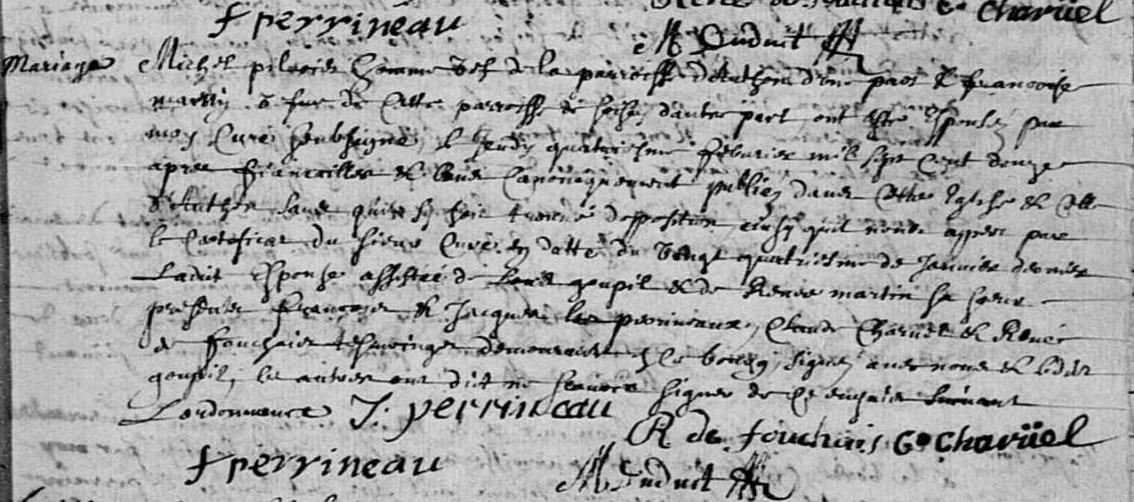 f perrineau
G Charüel
M Duduit
Mariage Michel homme vef de la parroisse d'Authon d'une part & francoise
martin fille de cette parroisse de d'autre part ont esté Espousez par
moy Curé soubsigné, le Jeudy quatriesme febvrier mil sept cent douze
apres fiancailles & bans canoniquement publiez dans cette Eglise & celle
d'Authon sans quil sy soit trouvé d'opposition ainsy quil nous appert par
le Certificat du sieur Curé en datte du vingt quatriesme de Janvier dernier
Ladite Espouse assistée de Louis goupil & de Renée martin sa soeur
presents francois & Jacques les perrineaux, Claude Charuel & René
de fouchais tesmoings demeurants en ce bourg, signez avec nous & ledit
goupil, les autres ont dit ne scavoir signer de ce enquis suivant
Lordonnance J. perrineau
R de fouchais G Charüel
f perrineau
M Duduit